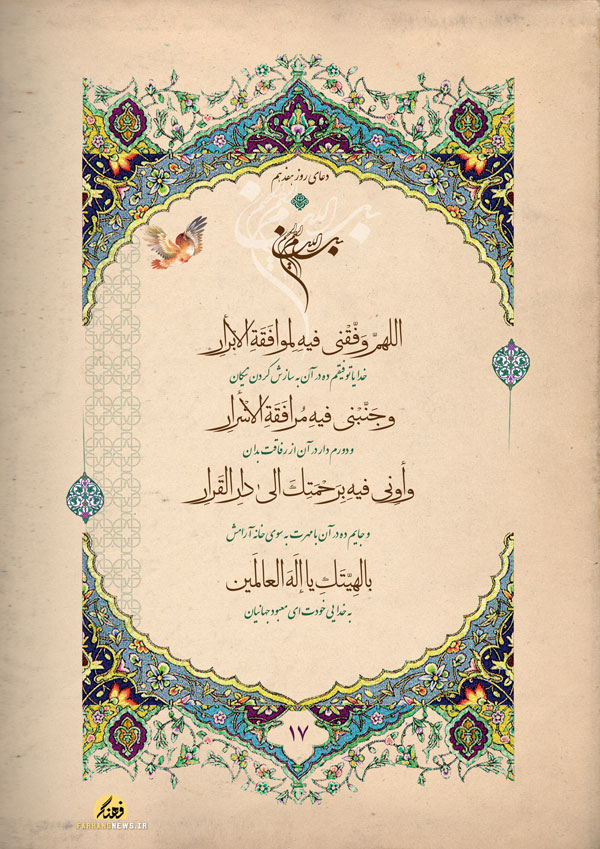 دعای روز هفدهم
بسم الله الرحمن الرحیم
اللهمَّ وَفِّقْنی فیهِ لِموافَقَةِ الأبْرارِ
خدایا توفیقم ده در آن به سازش کردن نیکان
وجَنِّبْنی فیهِ مُرافَقَةِ الأشْرارِ
و دورم دار در آن از رفاقت بدان
وأوِنی فیهِ بِرَحْمَتِكَ الی دارِ القَرارِ
و جایم ده در آن با مهرت به سوی خانه آرامش
بالهِیّتَكِ یا إلَهَ العالَمین
به خدایی خودت ای معبود جهانیان
۱۷
فرهنگ
FARHANGNEWS.IR